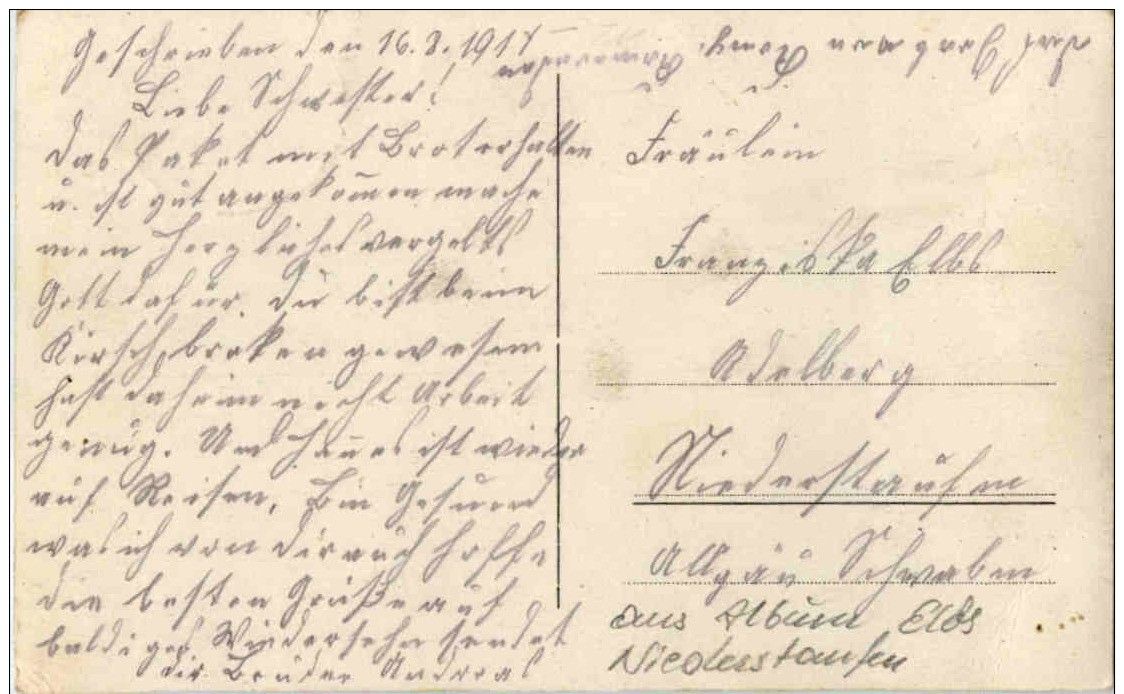 Geschrieben den 16.8.1917
Liebe Schwester!
Das Paket mit Brot erhalten
u. ist gut angekom̄en mache
mein herzliches vergelts
Gott dafür. Du bist beim
Kirschbroken gewesen
hast daheim nicht Arbeit
genug. Und Han̄es ist wieder
auf Reisen, bin Gesund
was ich von dir auch hoffe
die besten Grüße auf
baldiges Wiedersehn sendet
dir Bruder Andreas
Fräulein
Franziska Elbs
Adelberg
Niederstaufen
Allgäu Schwaben
aus Album Elbs
Niederstaufen